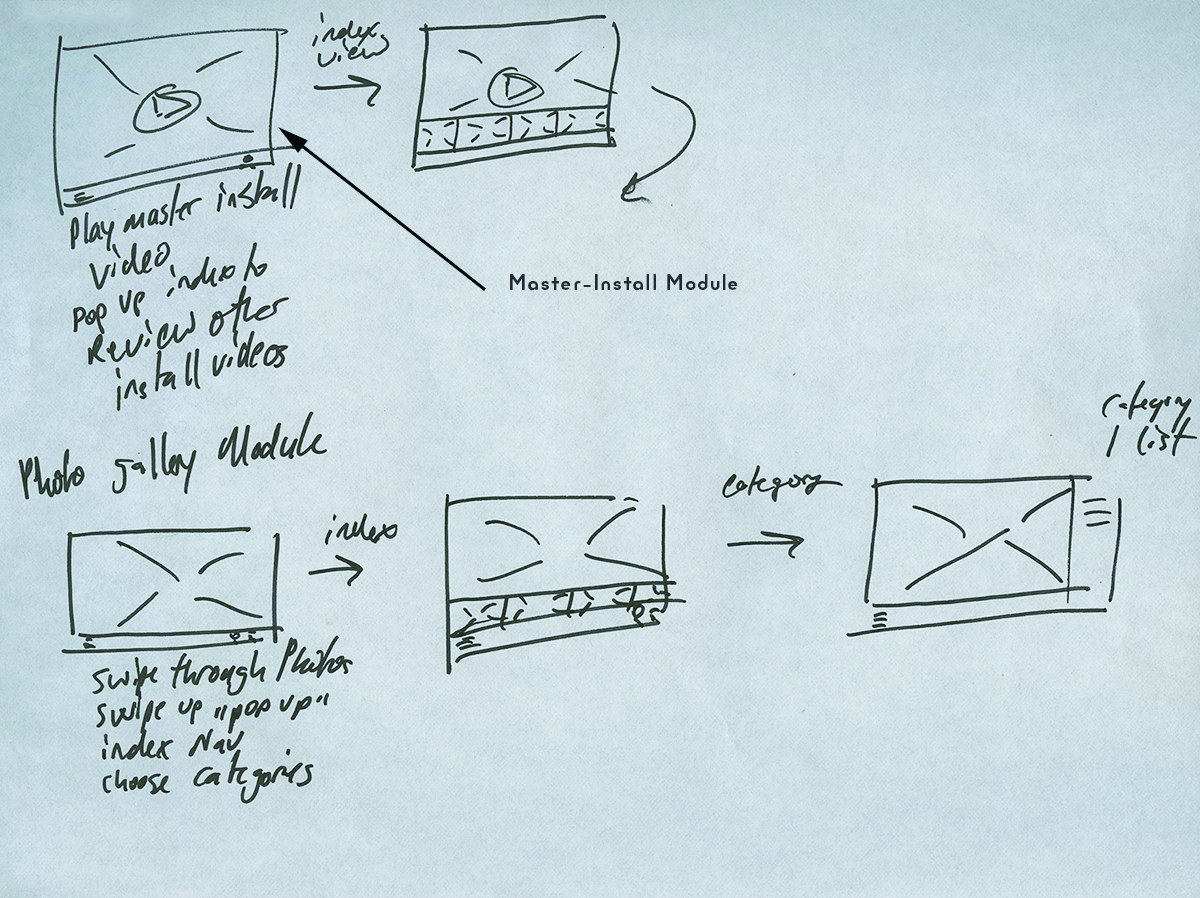 index
view
Play master install
video
Pop up index to
Review other
install videos
Master-Install Module
Photo gallery Module
index
category
category
list
swipe through Photos
swipe up "pop up"
index Nav
choose categories